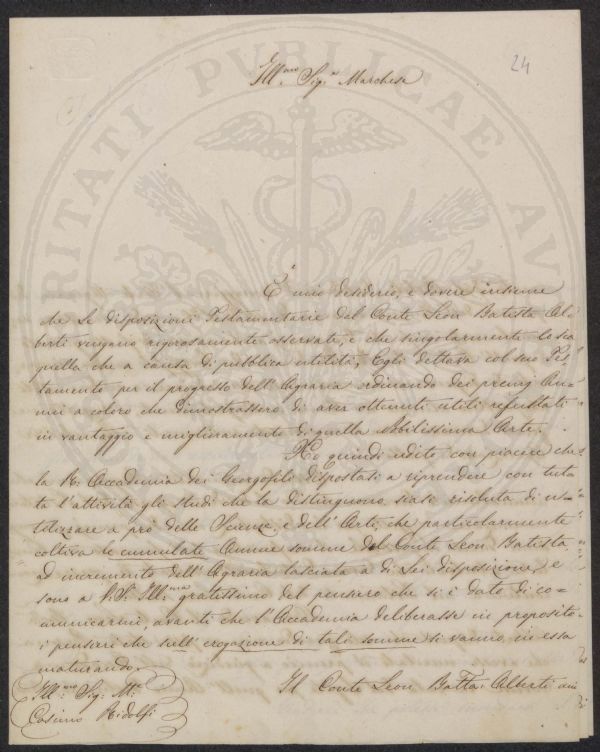 24
Ill.mo Sig.re Marchese
È mio desiderio, e dovere insieme
che le disposizioni Testamentarie del Conte Leon Batista Al=
berti vengano rigorosamente osservate, e che singolarmente lo sia
quella che a causa di pubblica utilità, Egli dettava col suo Tes=
tamento per il progresso dell'Agraria ordinando dei premj An=
nui a coloro che dimostrassero di aver ottenuti utili resultati
in vantaggio e miglioramento di quella Nobilissima Arte.
Ho quindi udito con piacere che
la R. Accademia dei Georgofili disposta a riprendere con tut=
ta l'attività gli studi che la distinguono siasi risoluta di u=
tilizzare a prò delle Scienze, e dell'Arti, che particolarmente
coltiva le cumulate Annue somme del Conte Leon Batista
ad incremento dell'Agraria lasciata a di Lei disposizione, e
sono a V.S. Ill.ma gratissimo del pensiero che si è dato di co=
municarmi, avanti che l'Accademia deliberasse in proposito
i pensieri che sull'erogazione di tali somme si vanno in essa
maturando.
Il Conte Leon Batta: Alberti
Ill.mo Sig: M.se
Cosimo Ridolfi
VERITATI PUBLICAE